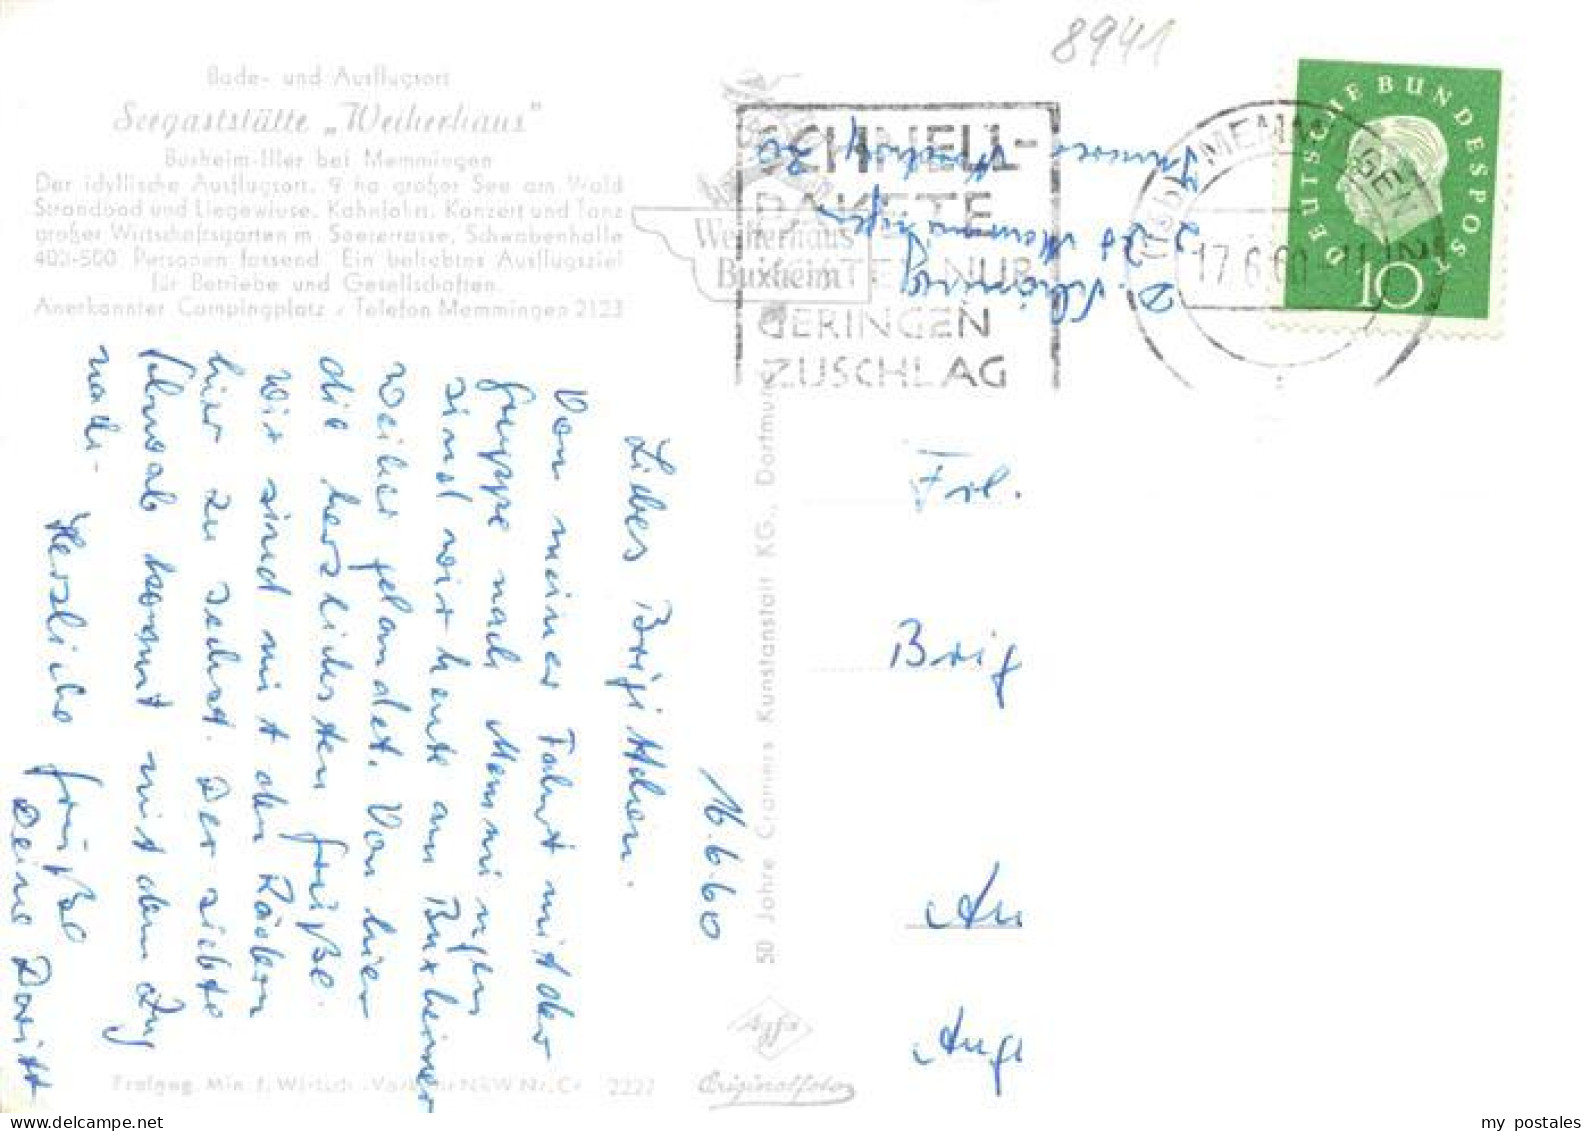 8941
Bade- und Ausflugsort
Seegaststätte „Weiherhaus"
Buxheim-Iller bei Memmingen
Der idyllische Ausflugsort. 9 ha großer See am Wald
Strandbad und Liegewiese. Kahnfahrt. Konzert und Tanz
großer Wirtschaftsgarten m. Seeterrasse, Schwabenhalle
400-500 Personen fassend. Ein beliebtes Ausflugsziel
für Betriebe und Gesellschaften.
Anerkannter Campingplatz / Telefon Memmingen 2123
Weiherhaus
Buxheim
SCHNELL-
PAKETE
NUR
GERINGEN
ZUSCHLAG
MEMMINGEN
17.6.60
DEUTSCHE BUNDESPOST
10
D. Schöning
Memmingen
30
16.6.60
Liebes Brigittchen.
Von meiner Fahrt mit der
Gruppe nach Memmingen
sind wir heute am Buxheimer
Weiher gelandet. Von hier
die herzlichsten Grüße.
Wir sind mit den Rädern
hier zu sechst. Der siebte
Schwab kommt mit dem Zug
nach.
Herzliche Grüße
Deine Doritt
Frl.
Brig
Au
Aug
50 Jahre Cramers Kunstanstalt KG., Dortmund
Agfa
Originalfoto
Freigeg. Min. f. Wirtsch. u. Verkehr NRW Nr. Cr 2227
my postales